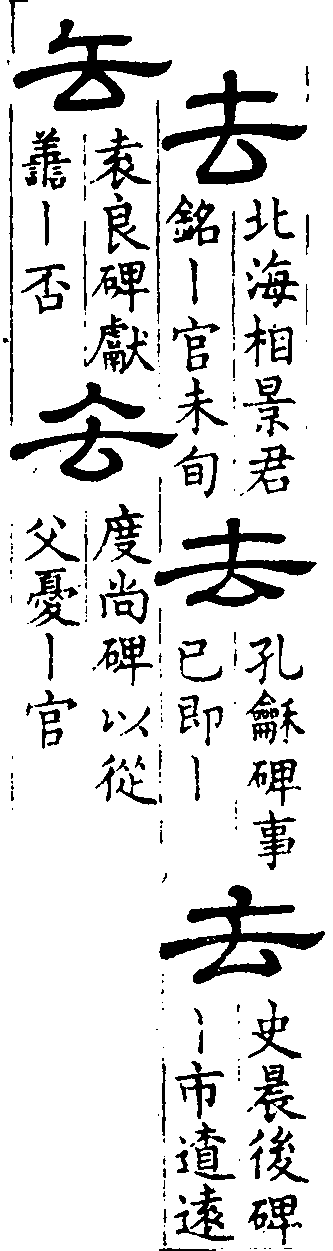 去
北海相景君
銘丨官未旬
去
孔龢碑事
已即丨
去
史晨後碑
丨市遼遠
去
袁良碑獻
譱丨否
去
度尚碑以從
父憂丨官